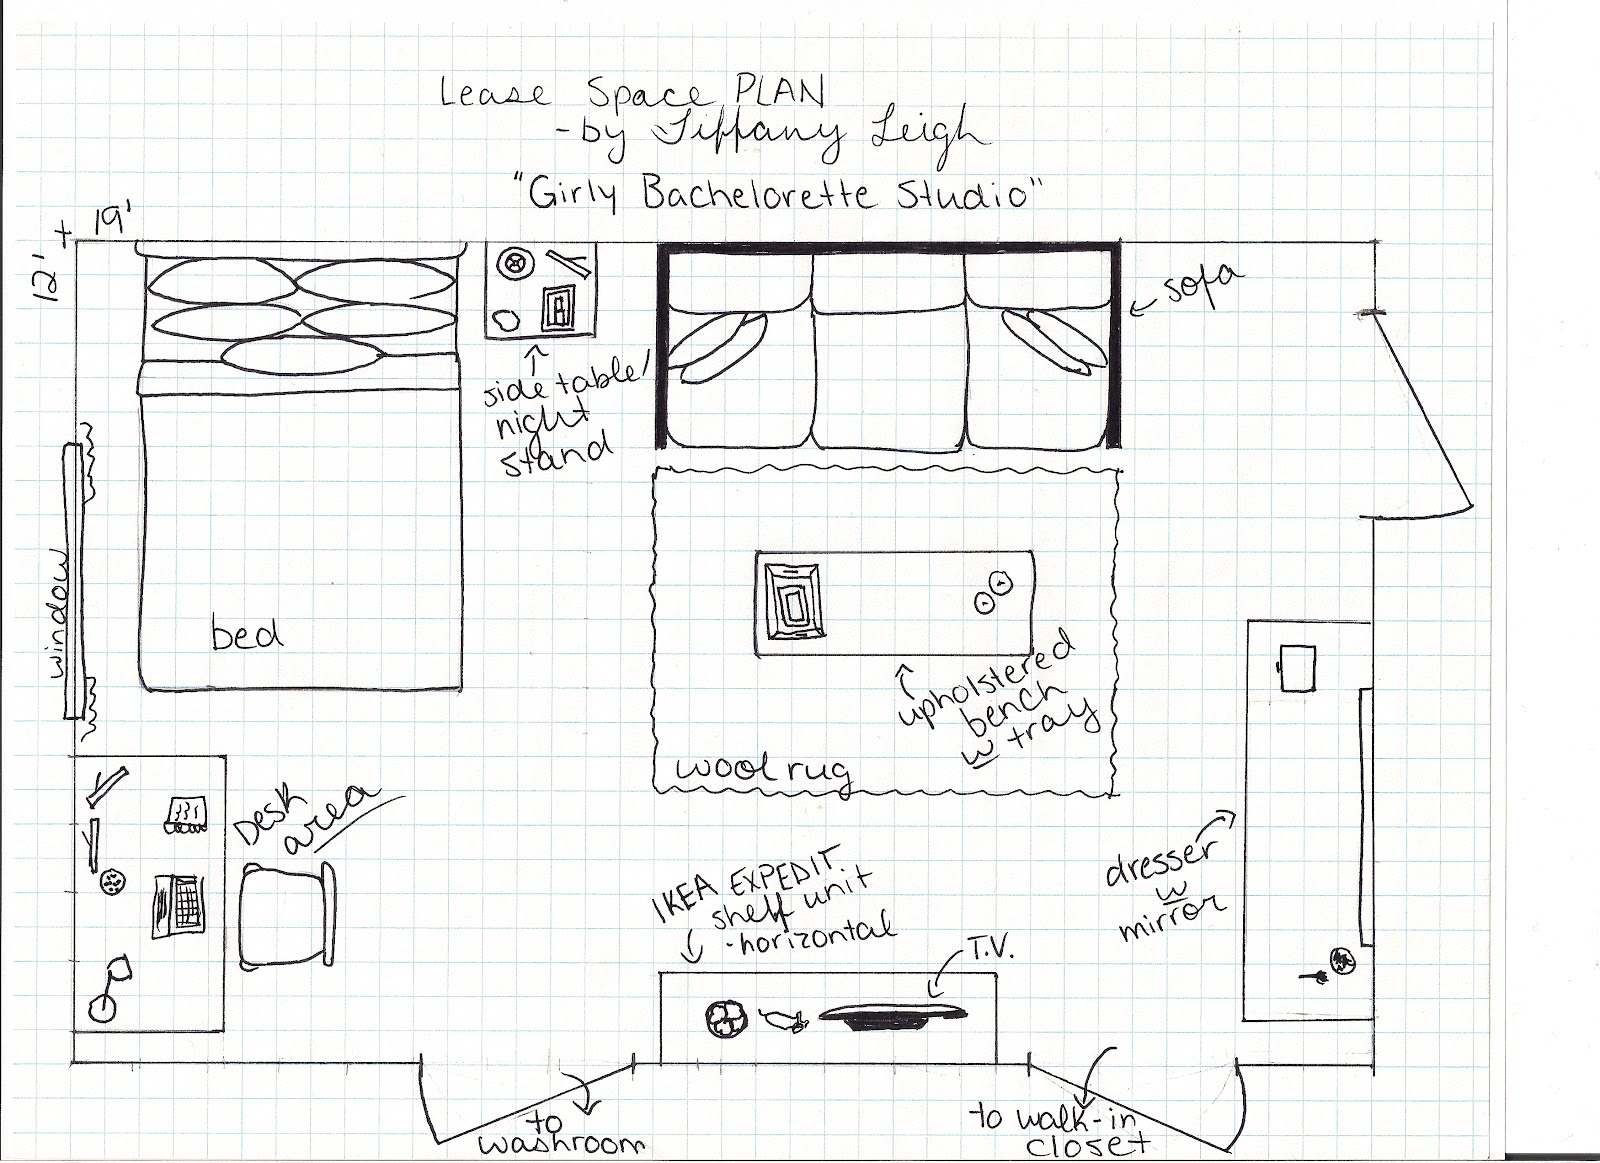 Lease Space PLAN
- by Tiffany Leigh
"Girly Bachelorette Studio"
19'
12'
sofa
side table/
night
stand
window
bed
upholstered
bench
w tray
wool rug
Desk
area
IKEA EXPEDIT
shelf unit
- horizontal
T.V.
dresser
w
mirror
to
washroom
to walk-in
closet